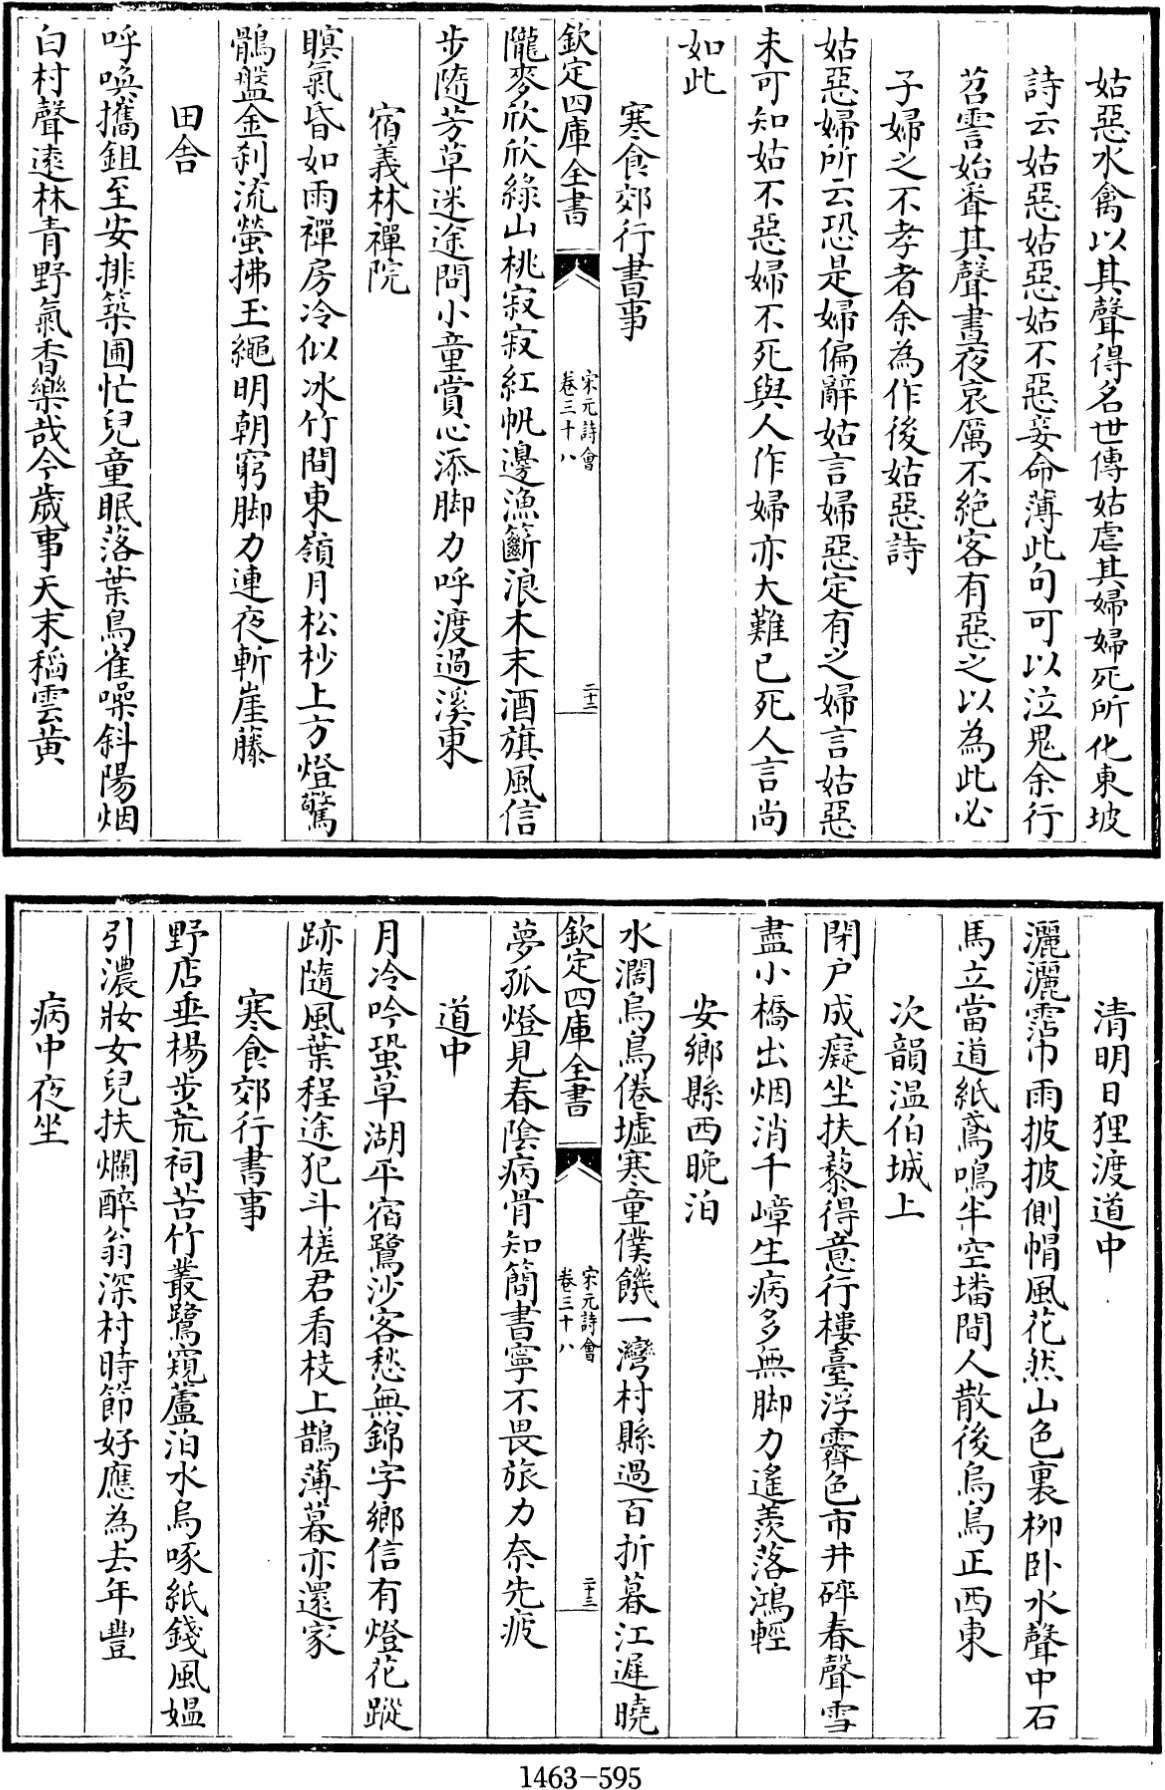 姑惡水禽以其聲得名世傳姑虐其婦婦死所化東坡
詩云姑惡姑惡姑不惡妾命薄此句可以泣鬼余行
苕霅始聞其聲晝夜哀厲不絶客有惡之以為此必
子婦之不孝者余為作後姑惡詩
姑惡婦所云恐是婦偏辭姑言婦惡定有之婦言姑惡
未可知姑不惡婦不死與人作婦亦大難已死人言尚
如此
寒食郊行書事
欽定四庫全書
宋元詩會
卷三十八
二十二
隴麥欣欣綠山桃寂寂紅帆邊漁䉼浪木末酒旗風信
步隨芳草迷途問小童賞心添脚力呼渡過溪東
宿義林禪院
暝氣昏如雨禪房冷似冰竹間東嶺月松杪上方燈驚
鶻盤金刹流螢拂玉繩明朝窮脚力連夜斬崖藤
田舍
呼喚攜鉏至安排築圃忙兒童眠落葉鳥雀噪斜陽烟
白村聲遠林青野氣香樂哉今歲事天末稻雲黄
清明日狸渡道中
灑灑霑巾雨披披側帽風花然山色裏柳卧水聲中石
馬立當道紙鳶鳴半空墦間人散後烏鳥正西東
次韻温伯城上
閉户成癡坐扶藜得意行樓臺浮霽色市井碎春聲雪
盡小橋出烟消千嶂生病多無脚力遙羡落鴻輕
安鄉縣西晚泊
水濶烏鳥倦墟寒童僕饑一灣村縣過百折暮江遲曉
欽定四庫全書
宋元詩會
卷三十八
二十三
夢孤燈見春陰病骨知簡書寧不畏旅力奈先疲
道中
月冷吟蛩草湖平宿鷺沙客愁無錦字鄉信有燈花蹤
跡隨風葉程途犯斗槎君看枝上鵲薄暮亦還家
寒食郊行書事
野店垂楊步荒祠苦竹叢鷺窺蘆泊水烏啄紙錢風媪
引濃妝女兒扶爛醉翁深村時節好應為去年豐
病中夜坐
1463-595